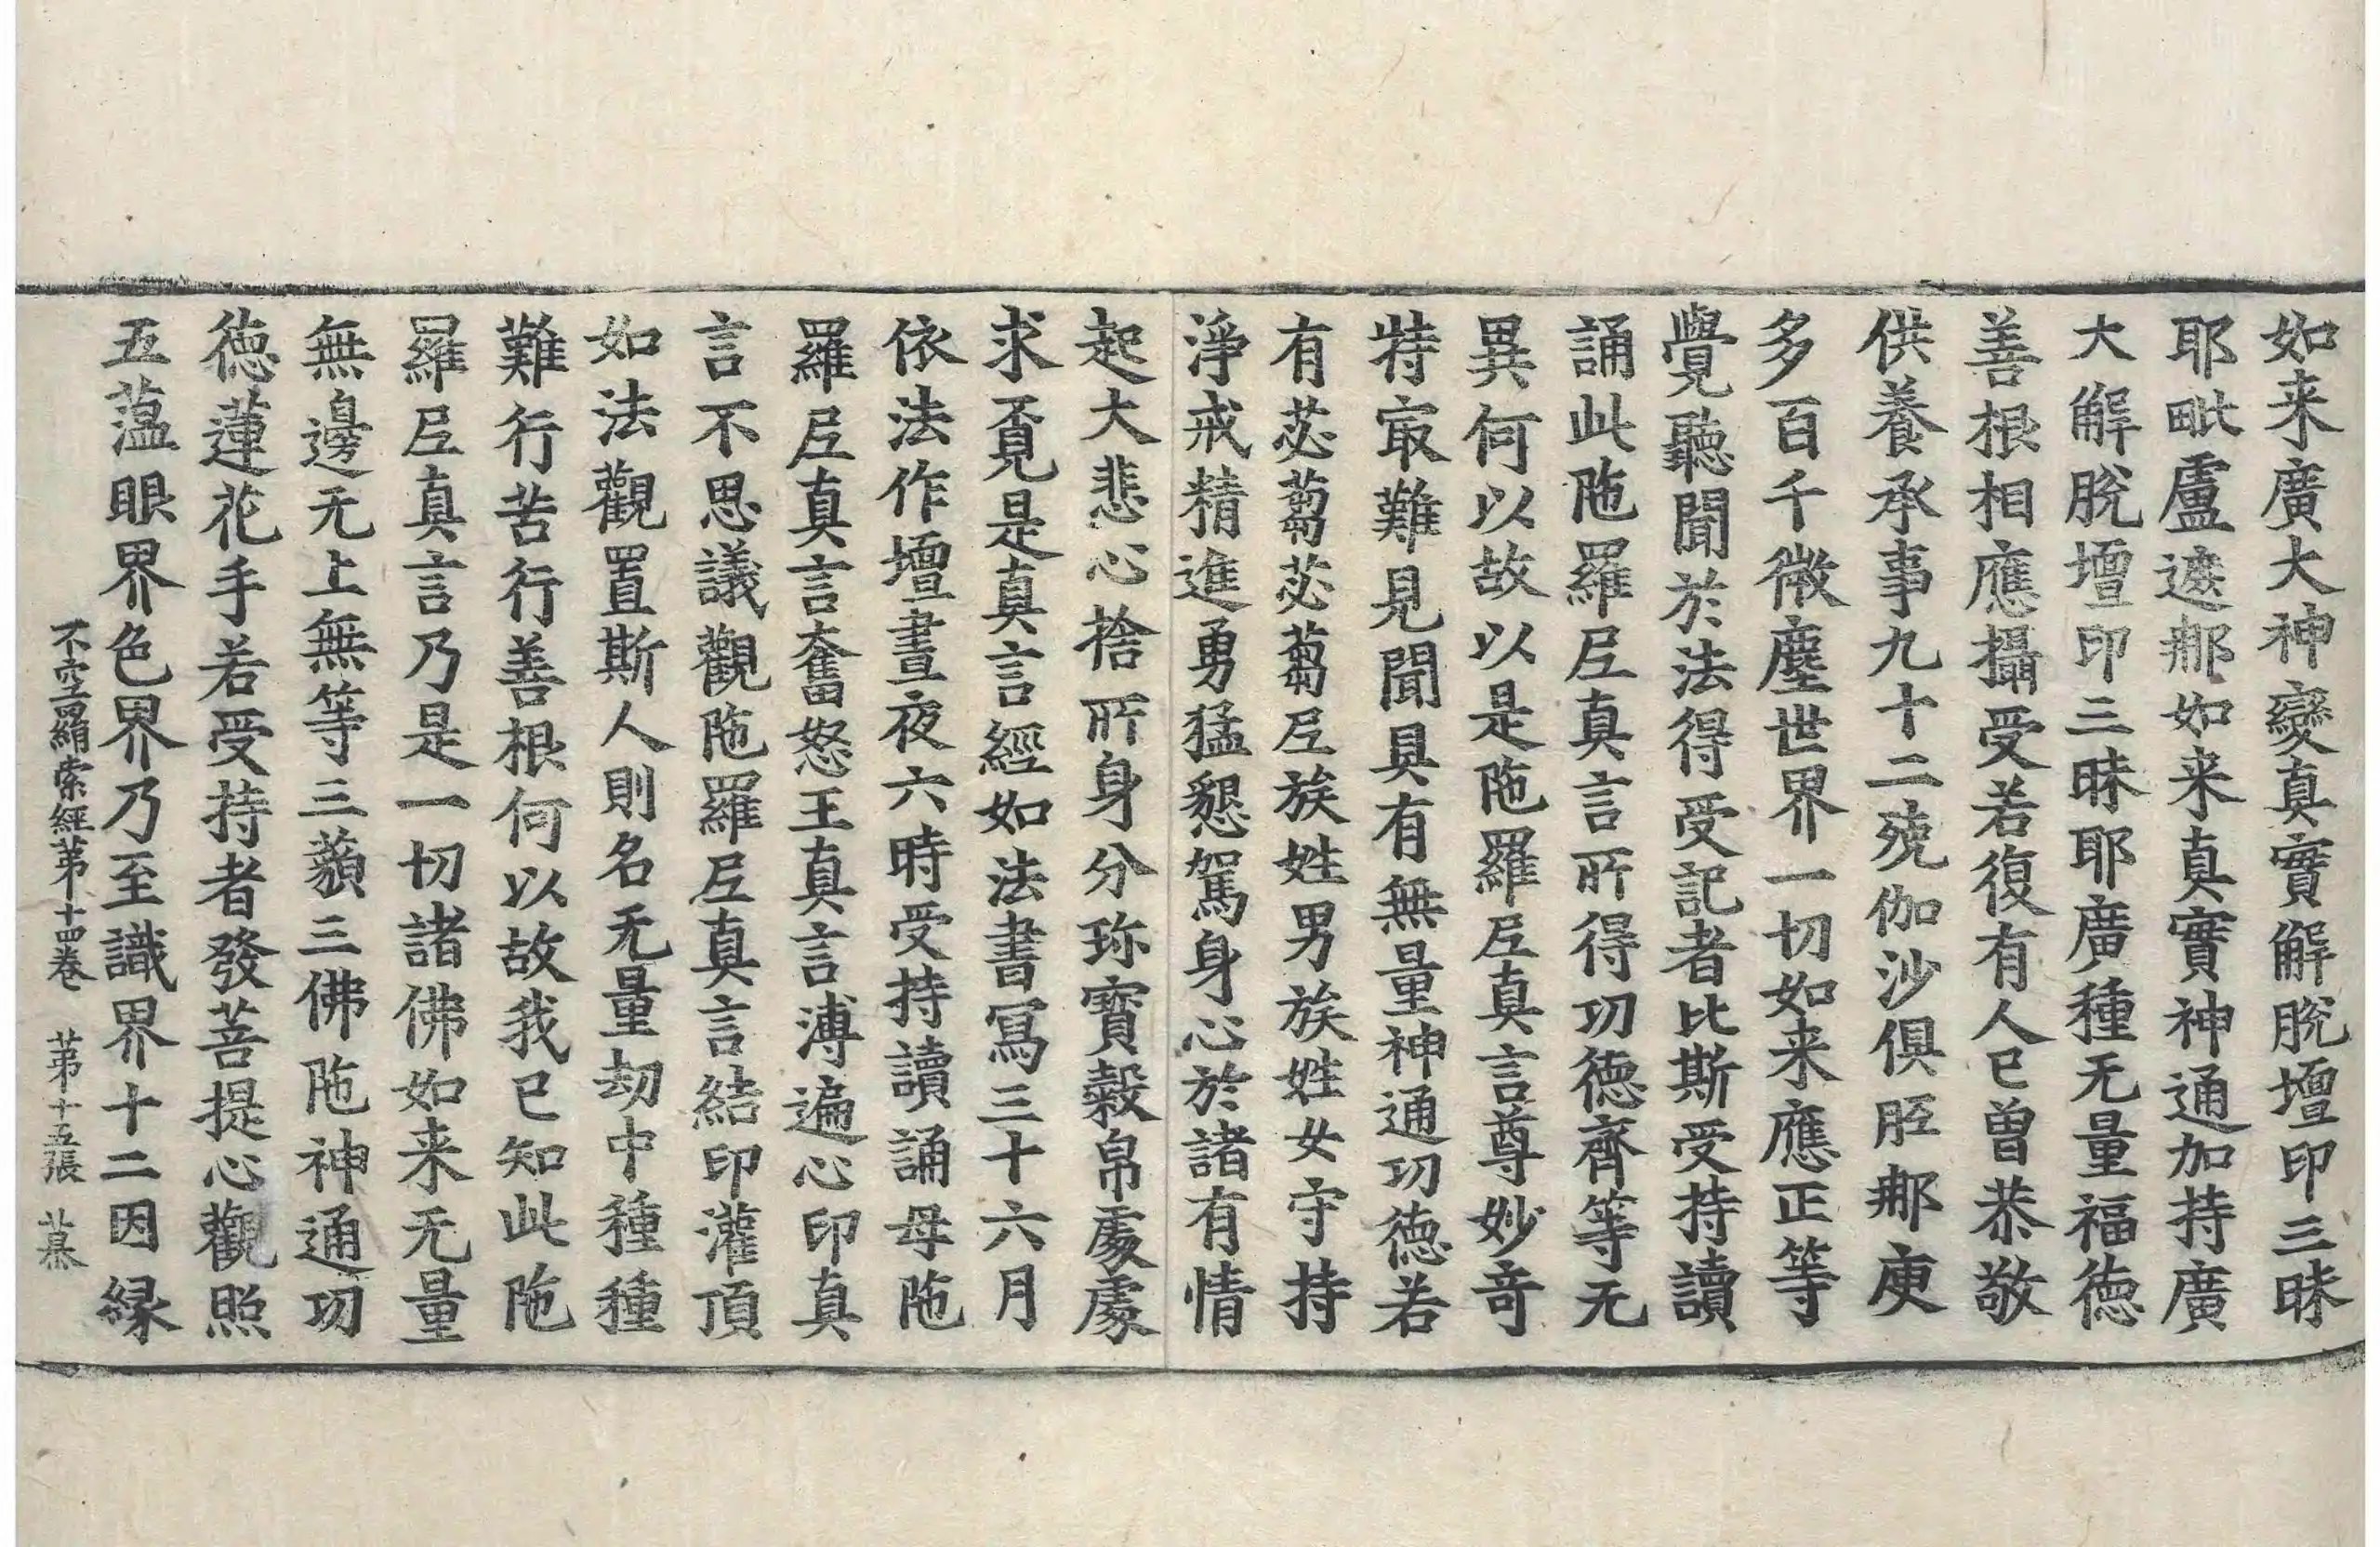 如来廣大神變真實解脫壇印三昧
耶毗盧遮那如来真實神通加持廣
大解脫壇印三昧耶廣種无量福德
善根相應攝受若復有人已曾恭敬
供養承事九十二殑伽沙俱胝那庾
多百千微塵世界一切如来應正等
覺聽聞於法得受記者比斯受持讀
誦此陁羅𡰱真言所得功德齊等无
異何以故以是陁羅𡰱真言尊妙竒
特㝡難見聞具有無量神通功德若
有苾蒭苾蒭𡰱族姓男族姓女守持
淨戒精進勇猛懇駕身心於諸有情
起大悲心捨所身分珎寳縠帛處處
求覓是真言經如法書寫三十六月
依法作壇晝夜六時受持讀誦母陁
羅𡰱真言奮怒王真言溥遍心印真
言不思議觀陁羅𡰱真言結印灌頂
如法觀置斯人則名无量劫中種種
難行苦行善根何以故我已知此陁
羅𡰱真言乃是一切諸佛如来无量
無邊无上無等三藐三佛陁神通功
德蓮花手若受持者發菩提心觀照
五蕰眼界色界乃至識界十二因緣
不空罥索經第十四卷　第十五張　幕